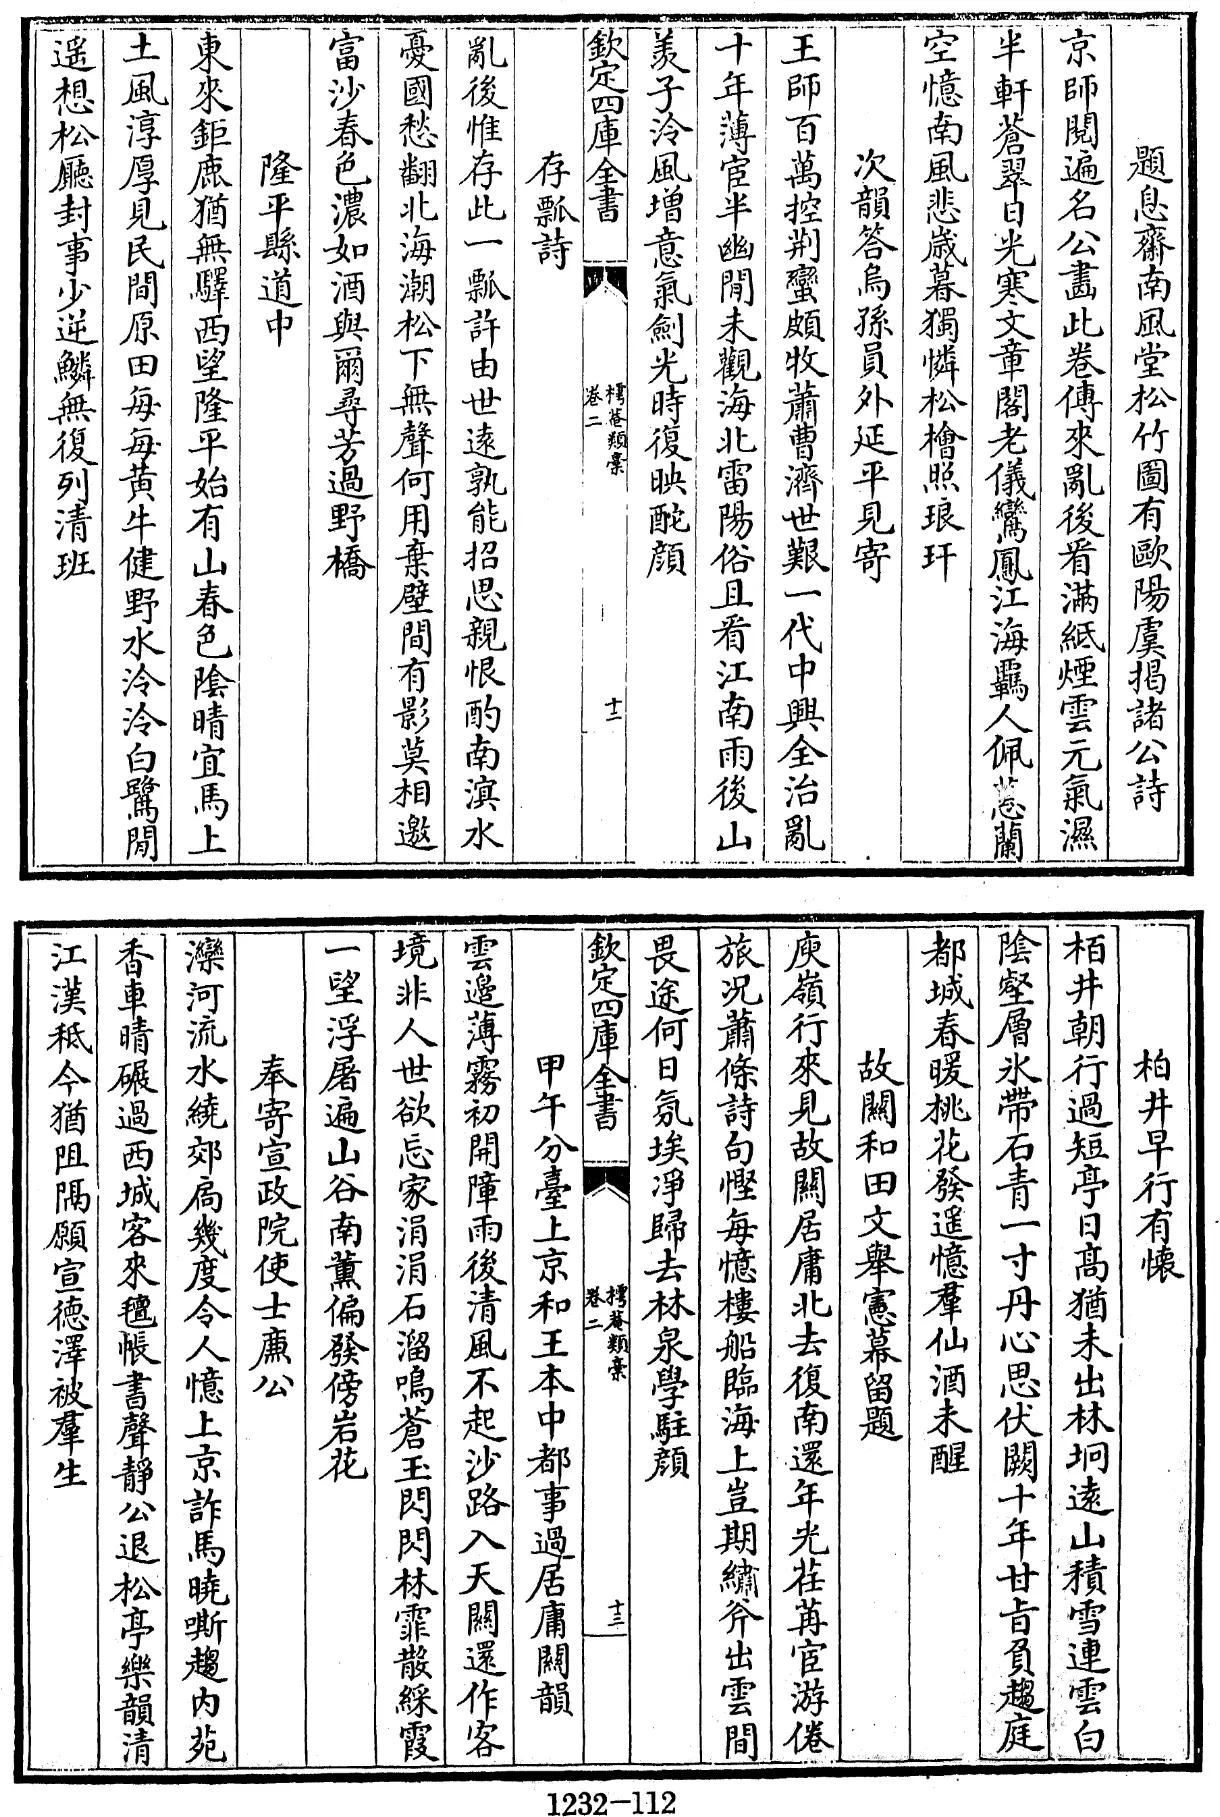 題息齋南風堂松竹圖有歐陽虞揭諸公詩
京師閱遍名公畵此卷傳來亂後看滿紙煙雲元氣濕
半軒蒼翠日光寒文章閣老儀鸞鳳江海羈人佩蕙蘭
空憶南風悲歲暮獨憐松檜照琅玕
次韻答烏孫員外延平見寄
王師百萬控荆蠻頗牧蕭曹濟世艱一代中興全治亂
十年薄宦半幽閒未觀海北雷陽俗且看江南雨後山
羨子泠風增意氣劍光時復映酡顔
欽定四庫全書
樗菴類藁
卷二
十二
存瓢詩
亂後惟存此一瓢許由世遠孰能招思親恨酌南溟水
憂國愁翻北海潮松下無聲何用棄壁間有影莫相邀
富沙春色濃如酒與爾尋芳過野橋
隆平縣道中
東來鉅鹿猶無驛西望隆平始有山春色陰晴宜馬上
土風淳厚見民間原田每每黄牛健野水泠泠白鷺閒
遥想松廳封事少逆鱗無復列清班
柏井早行有懷
栢井朝行過短亭日髙猶未出林坰遠山積雪連雲白
陰壑層氷帶石青一寸丹心思伏闕十年甘㫖負趨庭
都城春暖桃花發遥憶羣仙酒未醒
故闗和田文舉憲幕留題
庾嶺行來見故闗居庸北去復南還年光荏苒宦游倦
旅况蕭條詩句慳每憶樓船臨海上豈期繡斧出雲間
畏途何日氛埃凈歸去林泉學駐顔
欽定四庫全書
樗菴類藁
卷二
十三
甲午分臺上京和王本中都事過居庸闗韻
雲邉薄霧初開障雨後清風不起沙路入天闗還作客
境非人世欲忘家涓涓石溜鳴蒼玉閃閃林霏散綵霞
一望浮屠遍山谷南薰偏發傍岩花
奉寄宣政院使士亷公
灤河流水繞郊扃幾度令人憶上京詐馬曉嘶趨内苑
香車晴碾過西城客來氊帳書聲靜公退松亭樂韻清
江漢秪今猶阻隔願宣德澤被羣生
1232-112